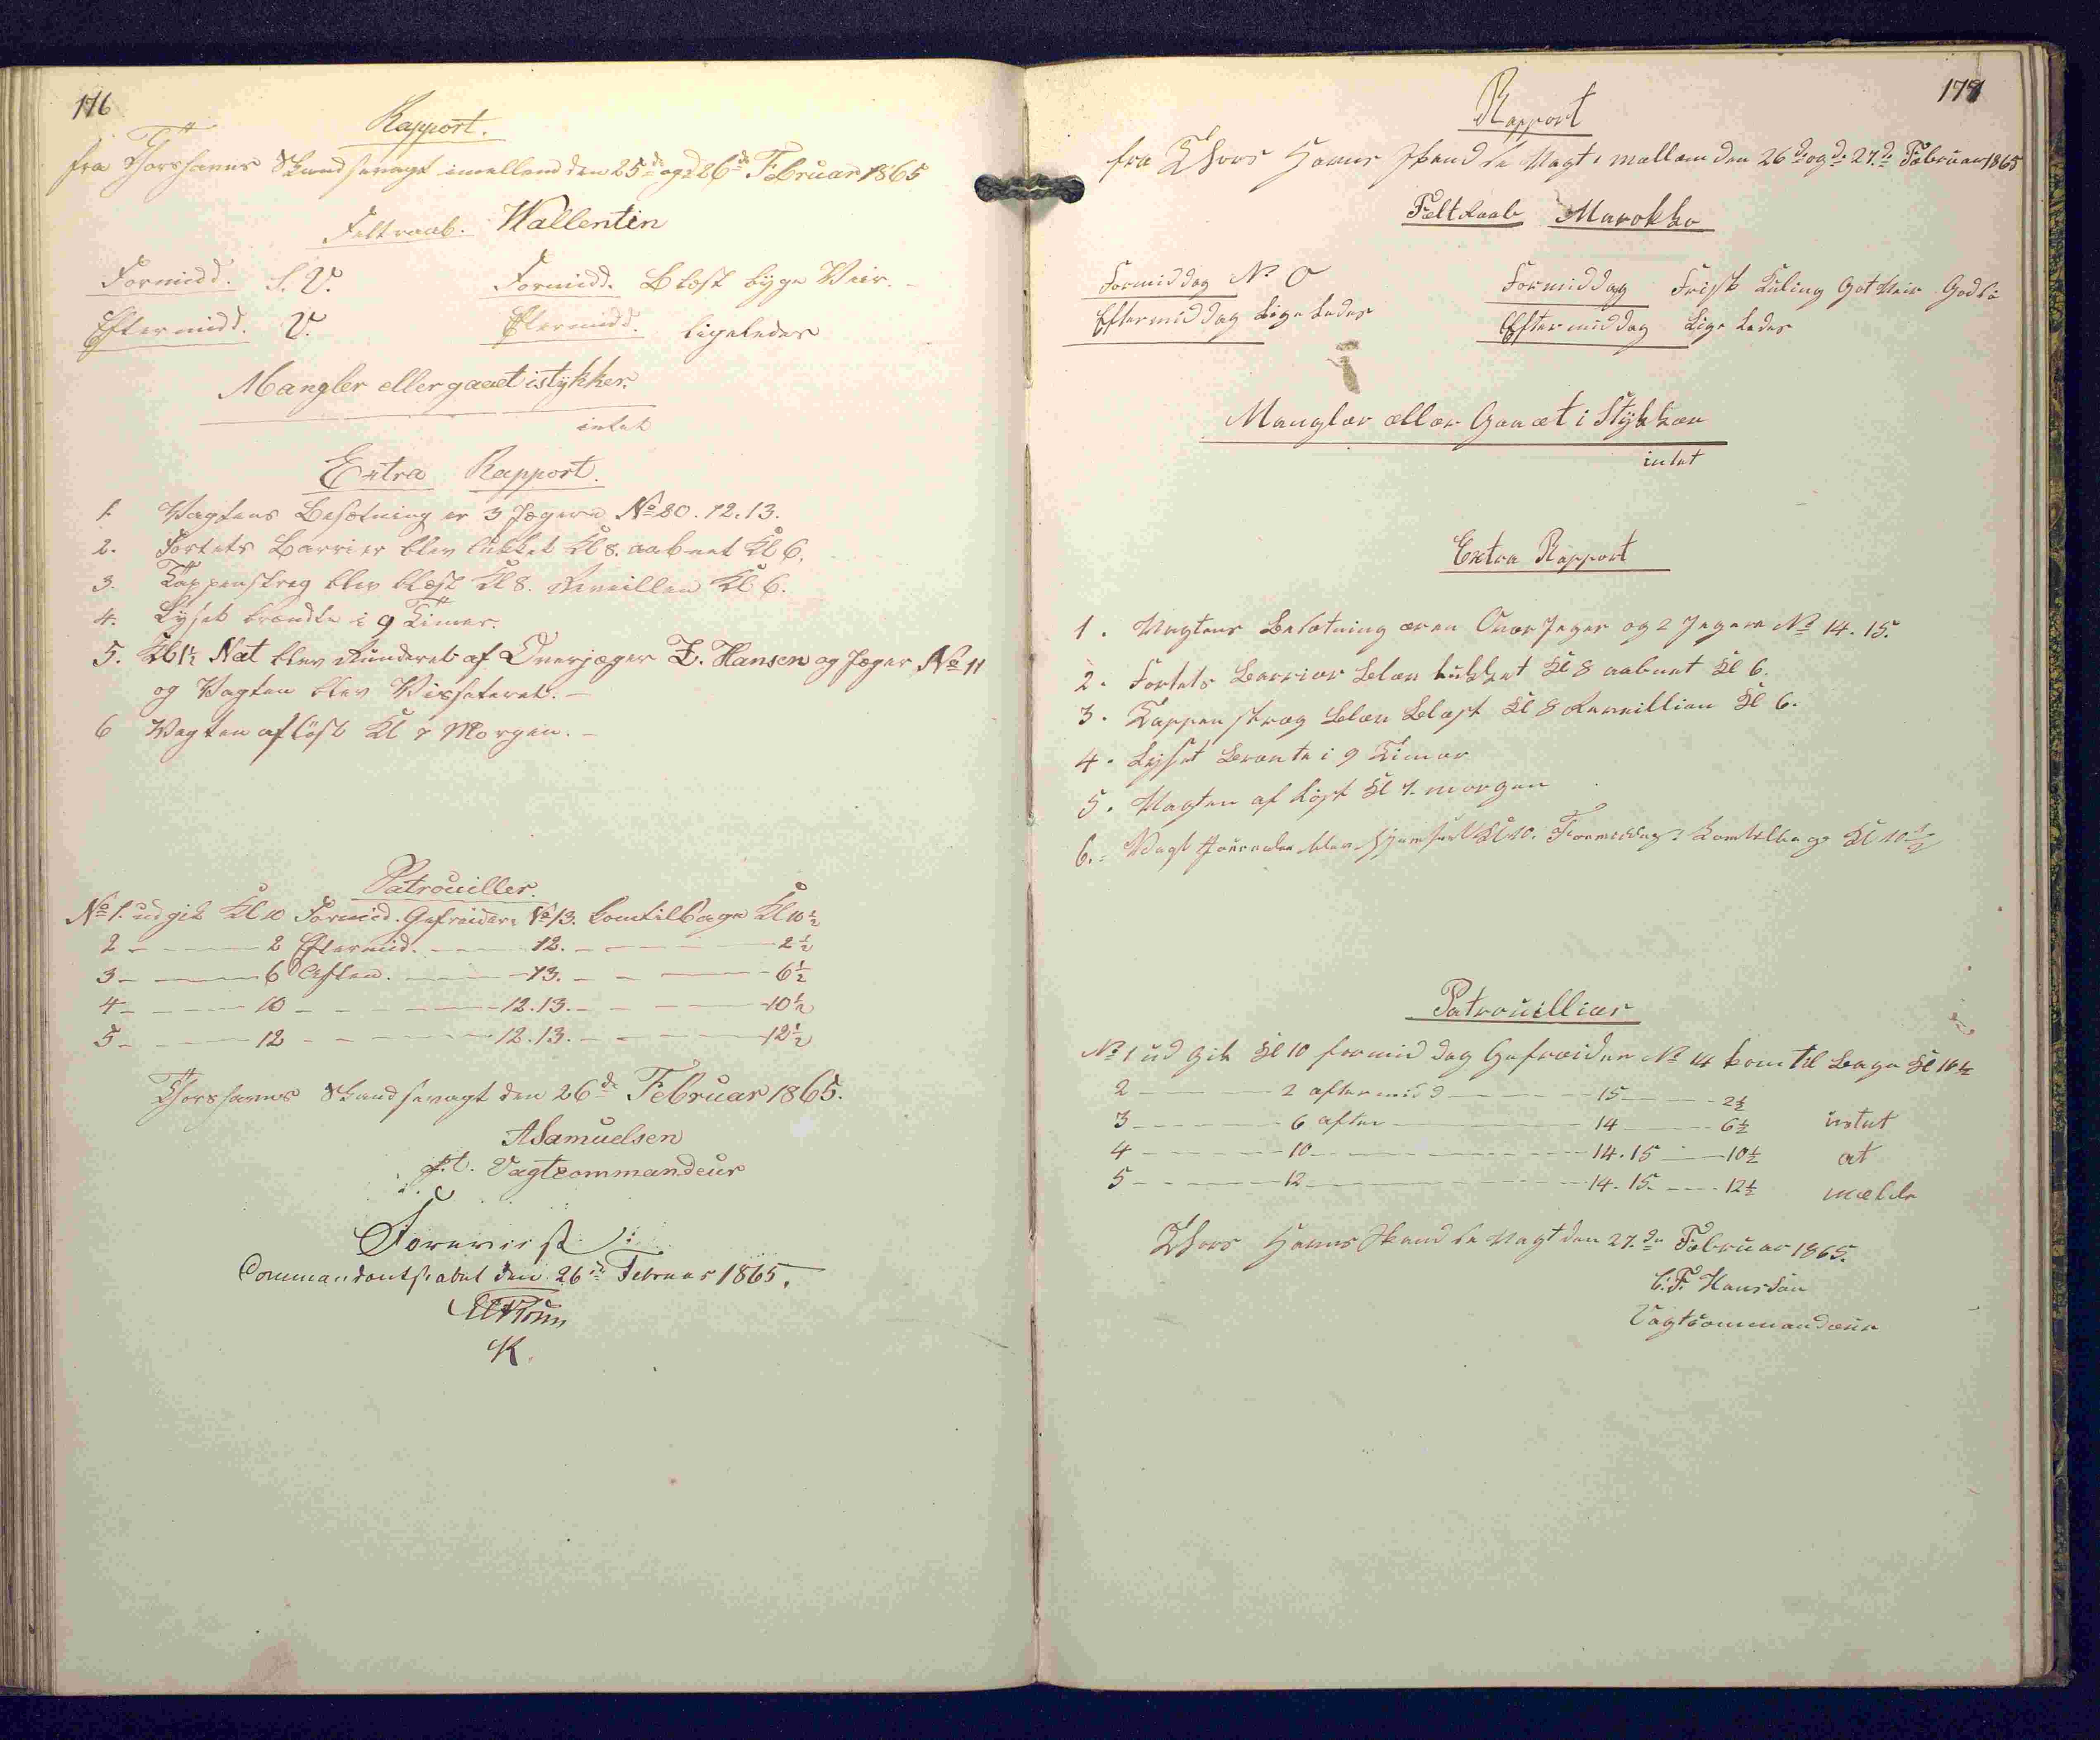 176
Rapport.
fra Thorshavns Skandsevagt imellem den 25de og 26de Februar 1865
Feltraab. Wallentin
Formidd. S.V. Formidd. Blæst byge Veir.
Eftermidd. V. Eftermidd. ligeledes
Mangler eller gaaet istykker.
intet
Extra Rapport.
1. Vagtens Besætning er 3 Jægere No 20. 12. 13.
2. Fortets Barrier blev lukket Kl 8. aabnet Kl 6.
3. Tappenstreg blev blæst Kl 8. Reveillen Kl 6.
4. Lyset brændte i 9 Timer.
5. Kl 1½ Nat blev Runderet af Overjæger Z. Hansen og Jæger No 11
og Vagten blev Visseteret. –
6 Vagten afløst Kl 7 Morgen. –
Patrouiller.
No 1. udgik Kl 10 Formid. Gefreider No 13. kom tilbage Kl 10½
2 – 2 Eftermid. – 12. – 2½
3 – 6 Aften. – 13. – 6½
4 – 10 – 12.13. – 10½
5 – 12 – 12.13. – 12½
Thorshavns Skandsevagt den 26de Februar 1865.
A Samuelsen
p.t. Vagtcommandeur
Foreviist
Commandantskabet den 26de Februar 1865.
K.
177
Rapport
fra Thors Havns Skandse Vagt i mellem den 26de og d. 27de Februar 1865
Feltraab Marokko
Formiddag N. O Formiddag Frisk Kuling Got Veir
Eftermiddag Lige Ledes Eftermiddag Lige Ledes
Mangler eller Gaaet i Stykker
intet
Extra Rapport
1. Vagtens Besætning er en Over Jeger og 2 Jegere No 14. 15.
2. Fortets Barrier blev lukket Kl 8 aabnet Kl 6.
3. Tappen streg blev Blæst Kl 8 Reveillien Kl 6.
4. Lyset Brente i 9 Timer
5. Vagten af løst Kl 7. morgen
6. Vagt blev Kl 10. Formiddag kom tilbage Kl 10½
Patrouillier
No 1 ud gik Kl 10 formid dag Gefreider No 14 kom til bage Kl 10½
2 – 2 eftermidd – 15 – 2½
3 – 6 aften – 14 – 6½ intet
4 – 10 – 14.15 – 10½ at
5 – 12 – 14.15. – 12½ melde
Thors Havns Skandse Vagt den 27.de Februar 1865.
C.F. Hansen
Vagtcommandeur